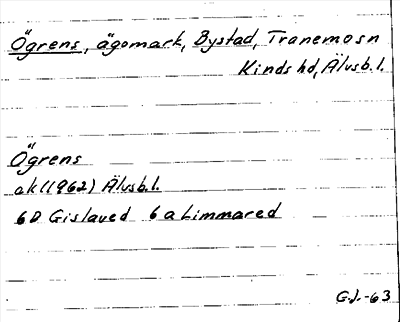 Ögrens, ägomark, Bystad, Tranemo sn
Kinds hd, Älvsb. l.
Ögrens
ek (1962) Älvsb. l.
6D Gislaved 6a Limmared
G.J.-63